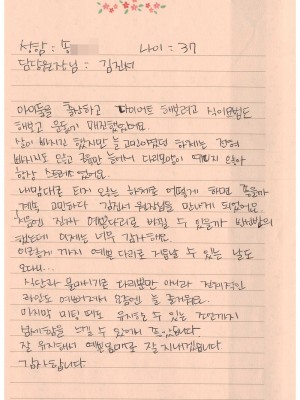 성함 : 송      나이 : 37
담당원장님 : 김진서
아이들을 출산하고 다이어트 해보려고 식이요법도
해보고 운동에 매진했었어요.
살이 빠지긴 했지만 늘 고민이였던 하체는 전혀
빠지지도 않고 근육만 늘어서 다리모양이 예쁘지 않아
항상 스트레스 였어요.
내맘대로 되지 않는 하체로 어떻게 하면 좋을까
계속 고민하다 김진서 원장님을 만나게 되었어요.
처음엔 진짜 예쁜다리로 바뀔 수 있을까 반신반의
했는데 이제는 너무 감사해요.
이렇게 까지 예쁜 다리로 거듭날 수 있는 날도
오다니...
식단과 몸매시술로 다리뿐만 아니라 전체적인
라인도 예뻐져서 요즘엔 늘 즐거워요.
마지막 미팅 때도 유지할 수 있는 것까지
받을 수 있어서 좋았습니다.
잘 유지해서 예쁜몸매로 잘 지내겠습니다.
감사합니다.